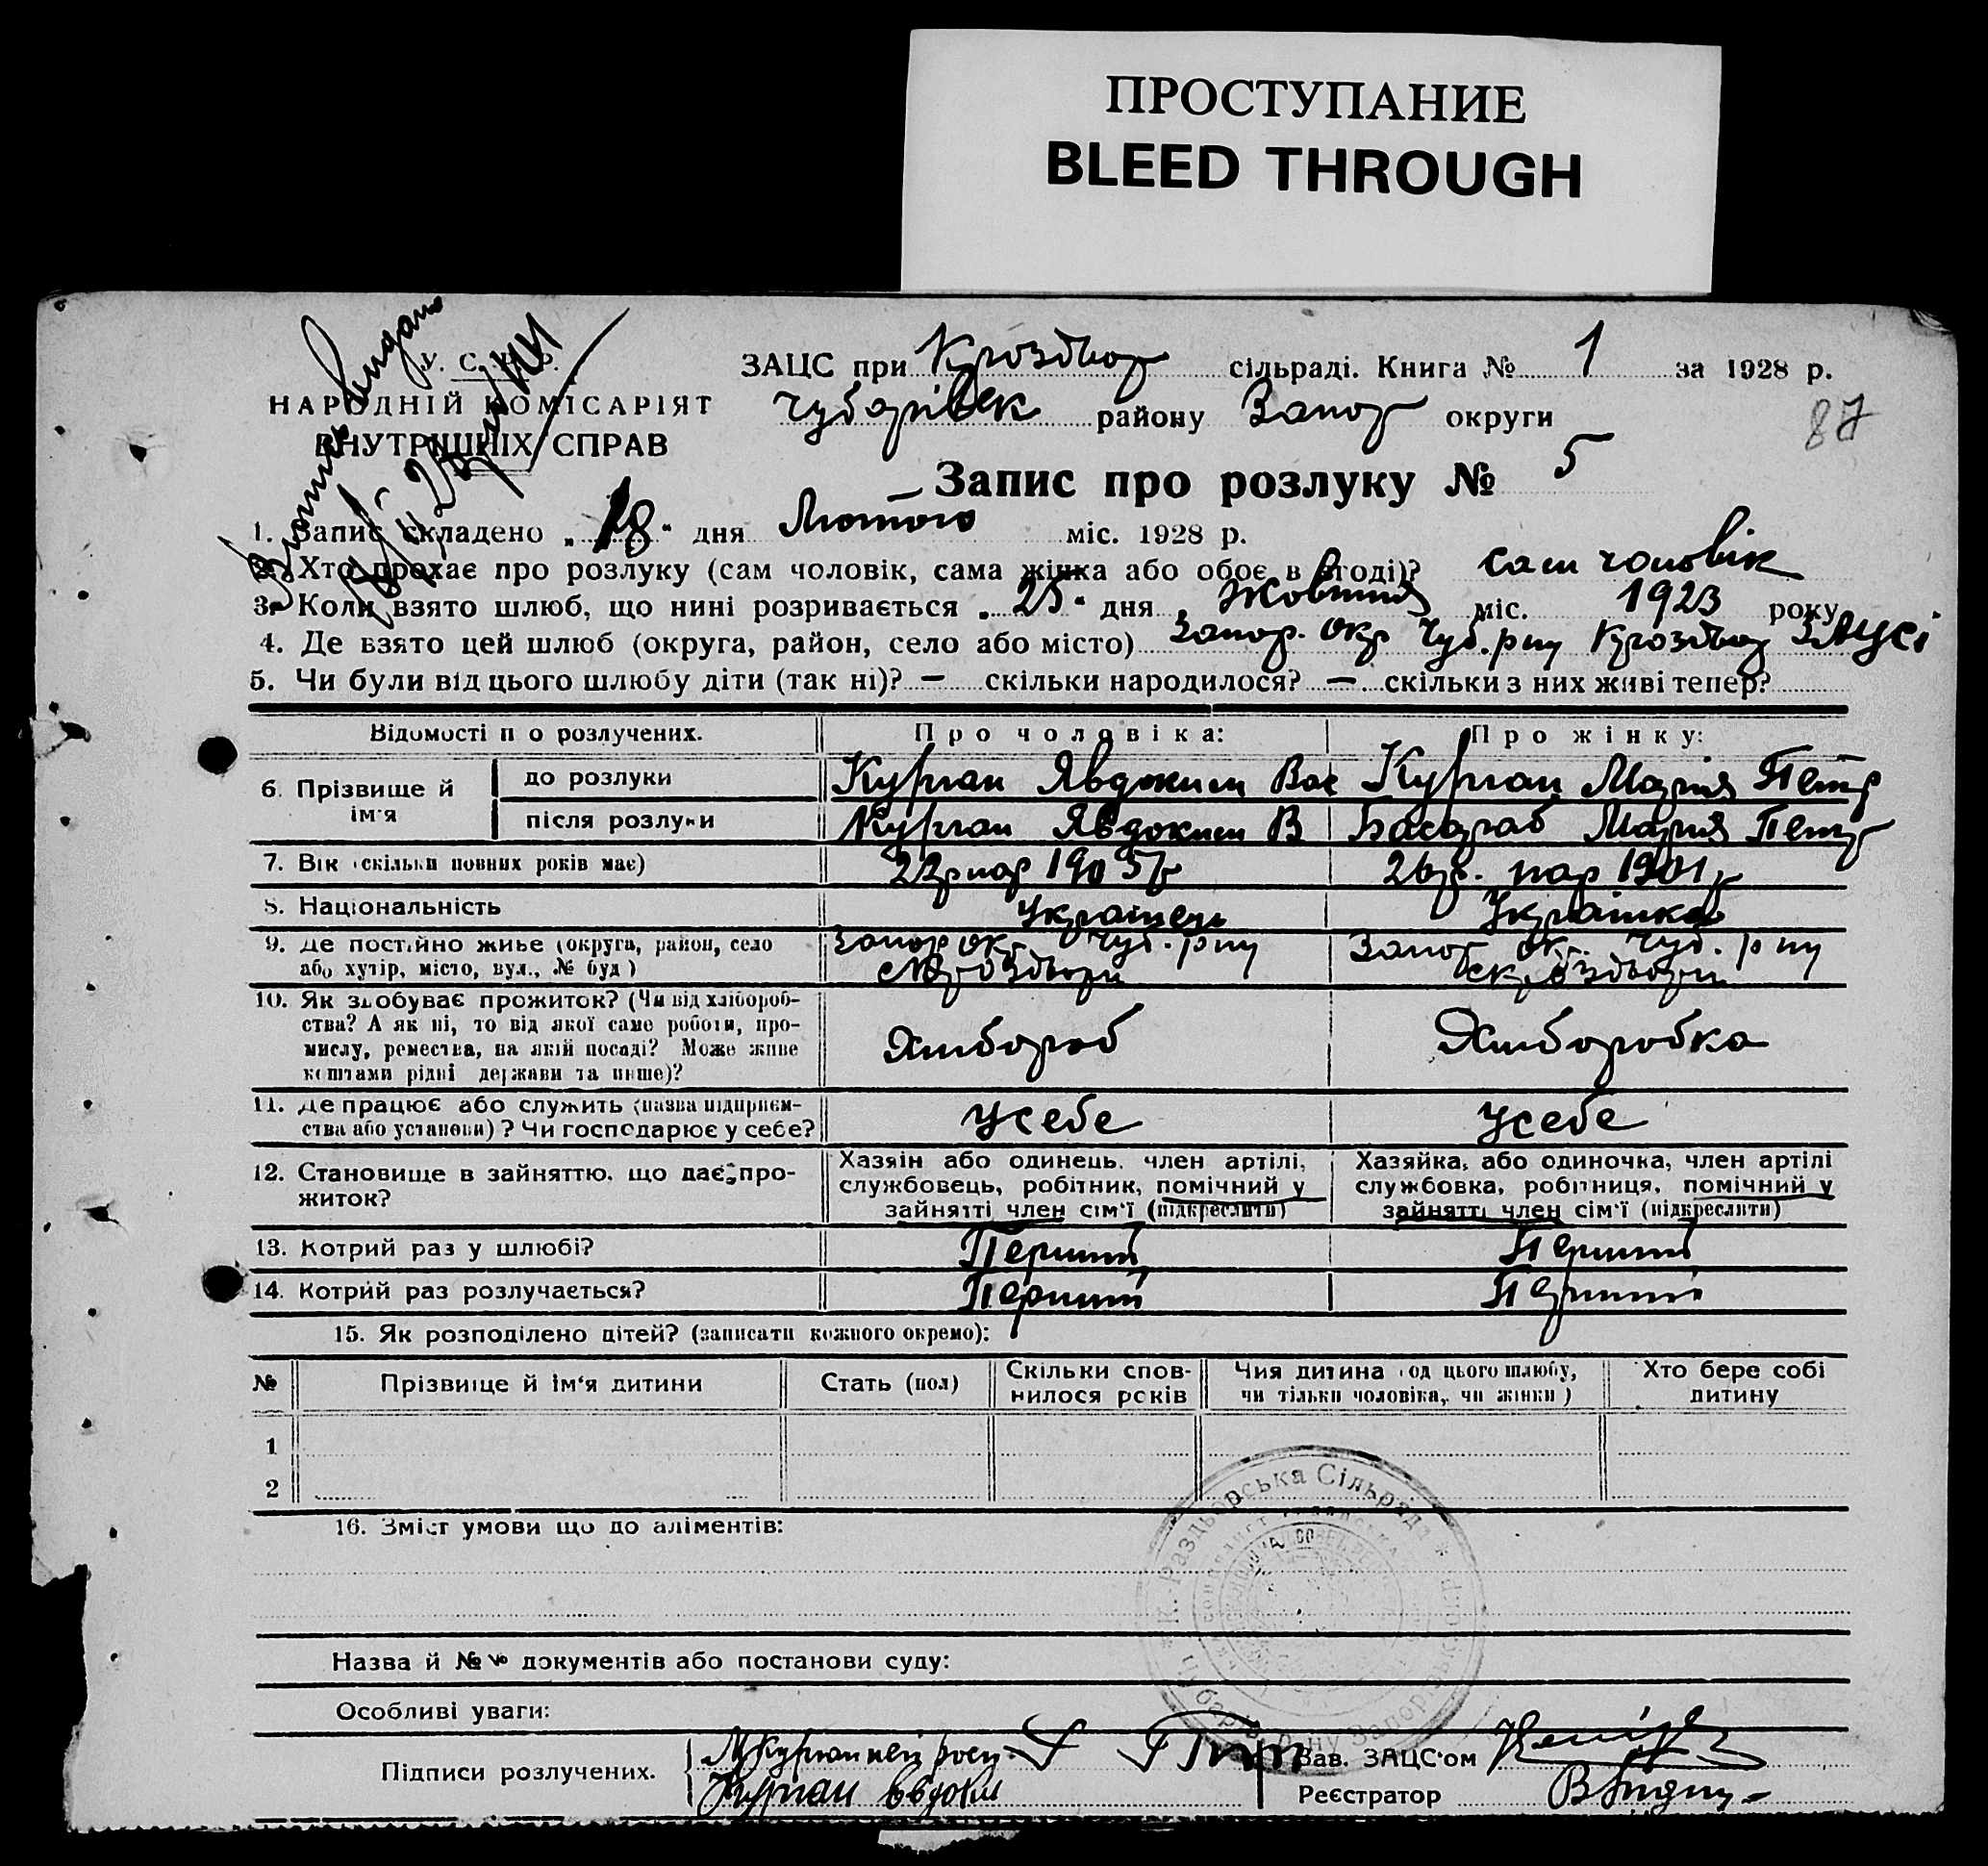 ПРОСТУПАНИЕ
BLEED THROUGH
У. С. Р. Р.
НАРОДНІЙ КОМІСАРІЯТ
ВНУТРІШНІХ СПРАВ
ЗАЦС при Кроздор сільраді. Книга № 1 за 1928 р.
Чубарівск району Запор округи
87
Запис про розлуку № 5
1. Запис складено „18“ дня Лютого міс. 1928 р.
2. Хто прохає про розлуку (сам чоловік, сама жінка або обоє в згоді)? сам чоловік
3. Коли взято шлюб, що нині розривається „25“ дня Жовтня міс. 1923 року
4. Де взято цей шлюб (округа, район, село або місто) Запор. окр Чуб. р ну Крозdор ЗАЦСі
5. Чи були від цього шлюбу діти (так ні)? — скільки народилося? — скільки з них живі тепер?
Відомості п о розлучених. Про чоловіка: Про жінку:
6. Прізвище й ім'я до розлуки Курпан Явдоким Вас Курпан Мария Петр
після розлуки Курпан Явдоким В Басараб Мария Петр
7. Вік (скільки повних років має) 22 р нар 1905 р 26 р. нар 1901 р
8. Національність Українець Українка
9. Де постійно живе (округа, район, село Запор окр. Чуб. р ну Запор ок. Чуб. р ну
або хутір, місто, вул., № буд)
10. Як здобуває прожиток? (Чи від хлібороб-
ства? А як ні, то від якої саме роботи, про- Хлібороб Хлiборобка
мислу, ремества, на якій посаді? Може живе
коштами рідні держави та инше)?
11. Де працює або служить (назва підприєм- Усебе Усебе
ства або установи)? Чи господарює у себе?
12. Становище в зайняттю, що дає про- Хазяїн або одинець, член артілі, Хазяйка, або одиночка, член артілі
житок? службовець, робітник, помічний у службовка, робітниця, помічний у
зайнятті член сім'ї (підкреслити) зайнятті член сім'ї (підкреслити)
13. Котрий раз у шлюбі? Перший Перший
14. Котрий раз розлучається? Перший Перший
15. Як розподілено дітей? (записати кожного окремо):
№ Прізвище й ім'я дитини Стать (пол) Скільки спов- Чия дитина (од цього шлюбу, Хто бере собі
нилося років чи тільки чоловіка, чи жінки) дитину
1
2
16. Зміст умови що до аліментів:
Назва й №№ документів або постанови суду:
Особливі уваги:
Підписи розлучених. Зав. ЗАЦС'ом
Курпан Реєстратор